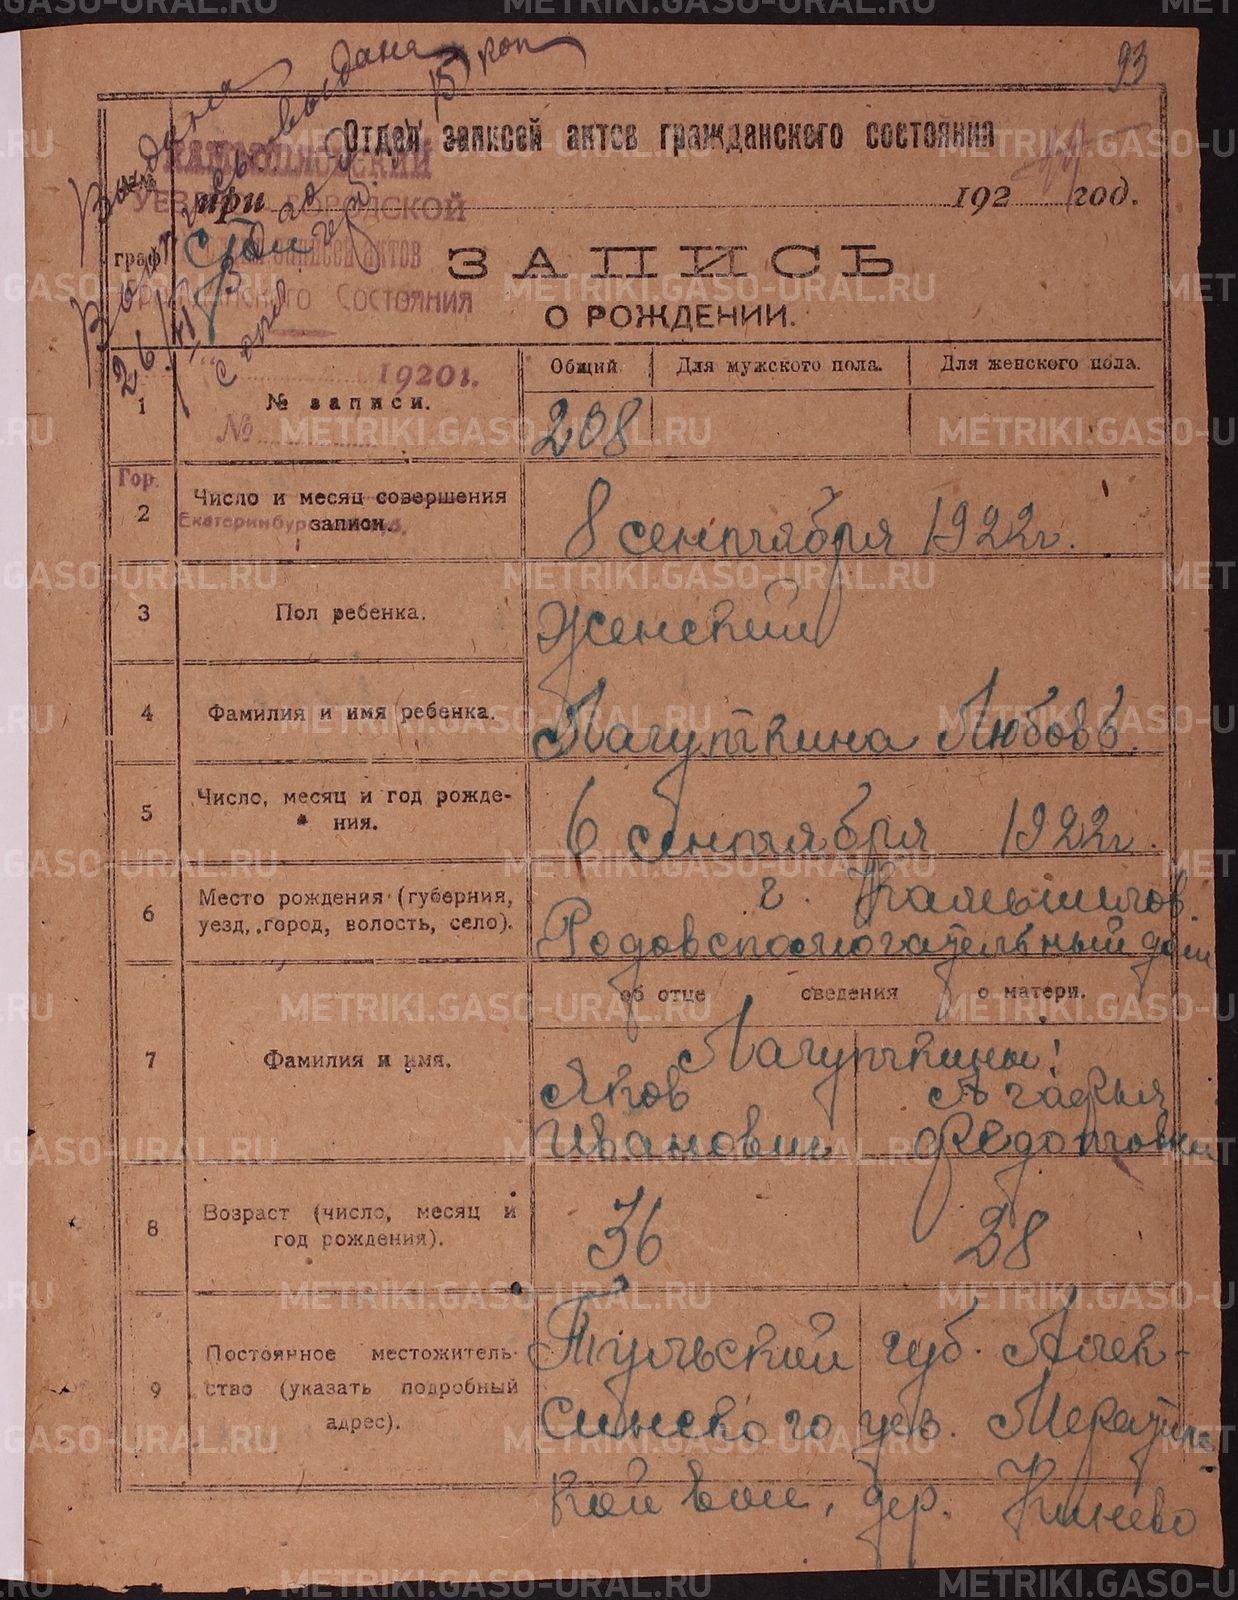 93
Выдана
15 коп
Отдел записей актов гражданского состояния
КАМЫШЛОВСКИЙ
при 192 год.
ГОРОДСКОЙ
записей актов
граф
ЗАПИСЬ
Гражданского Состояния
О РОЖДЕНИИ.
1920г.
Общий Для мужского пола. Для женского пола.
1 № записи. 208
№
Гор.
2 Число и месяц совершения записи. 8 сентября 1922г.
3 Пол ребенка. Женский
4 Фамилия и имя ребенка. Лагуткина Любовь.
5 Число, месяц и год рожде-
ния. 6 сентября 1922г.
6 Место рождения (губерния, г. Камышлов.
уезд, город, волость, село). Родовспомогательный дом
об отце сведения о матери.
7 Фамилия и имя. Лагуткины:
Яков Агафья
Иванович Федотовна
8 Возраст (число, месяц и
год рождения). 36 38
9 Постоянное местожитель-
ство (указать подробный
адрес).
Тульской губ. Алек-
синского уез.
кой вол., дер.
METRIKI.GASO-URAL.RU